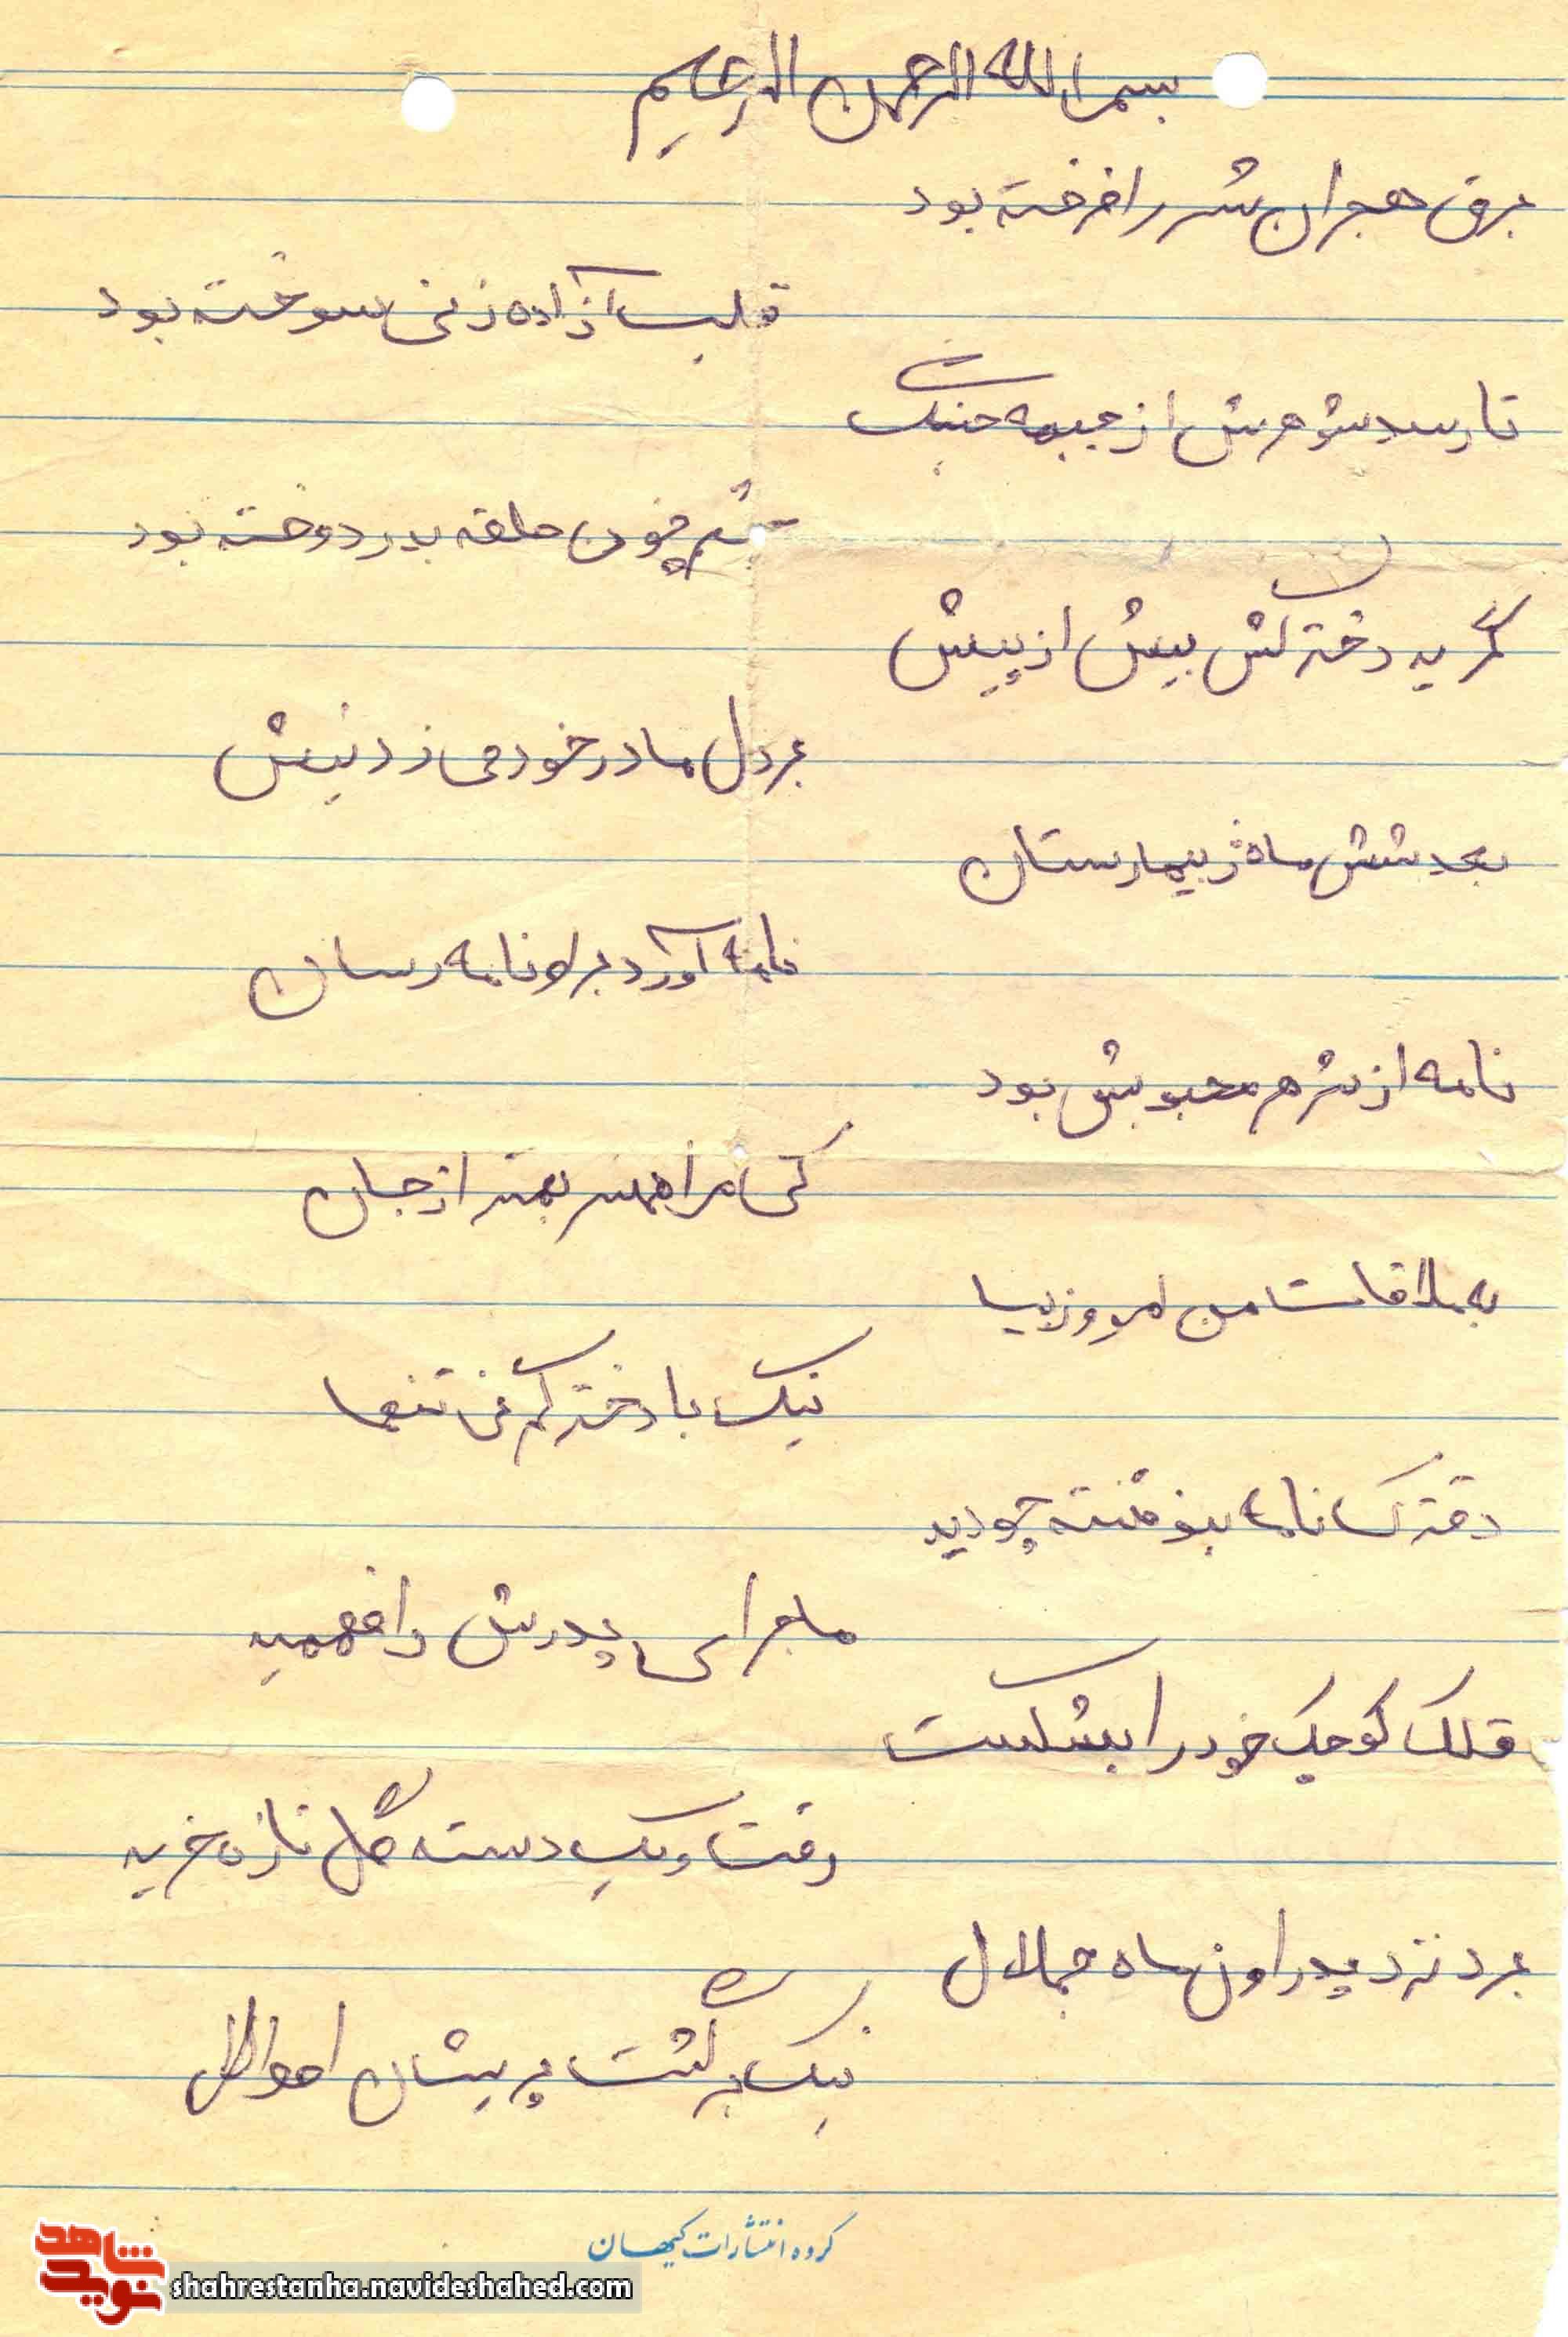 بسم الله الرحمن الرحیم
برق هجران شرر افرخته بود
قلب آزاده زنی سوخته بود
تا رسد شوهرش از جبهه جنگ
چشم چون حلقه بدر دوخته بود
گریه دخترکش بیش از پیش
بر دل مادر خود می زد نیش
بعد شش ماه ز بیمارستان
نامه آورد براو نامه رسان
نامه از شوهر محبوبش بود
کی مرا همسر بهتر از جان
به ملاقات من امروز بیا
نیک با دخترکم نی تنها
دخترک نامه بنوشته چو دید
ماجرای پدرش را فهمید
قلک کوچک خود را بشکست
رفت و یک دسته گل تازه خرید
برد نزد پدر اون ماه جمال
نیک برگشت پریشان احوال
گروه انتشارات کیهان
شاهد
نوید
shahrestanha.navideshahed.com